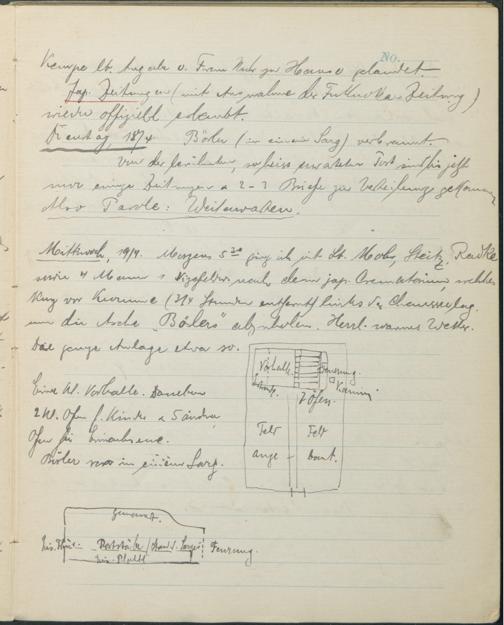 No.
Kempe lt. Angabe v. Frau Mohr zu Hause gelandet.
Jap. Zeitungen (mit Ausnahme der Fukuoka Zeitung)
wieder offiziell erlaubt.
Dienstag, 18/4 Böler (in einem Sarg) verbrannt.
Von der heiß erwarteten Post sind bis jetzt
nur einige Zeitungen u 2-3 Briefe zur Verteilung gekommen
Also Parole: Weiterwarten.
Mittwoch, 19/4. Morgens 5 30 ging ich mit Lt. Mohr, Steitz, Radke
sowie 4 Mann nach dem jap. Crematorium welches
kurz vor Kurume (3/4 Stunden entfernt) links der Chaussee lag.
um die Asche "Bölers" abzuholen. Herrl. warmes Wetter.
Die ganze Anlage etwa so.
Vorhalle. Feuerung.
Kamin
Eine kl. Vorhalle. Daneben
7 Öfen.
2 kl. Öfen f. Kinder u 5 andere
Feld Feld
Öfen für Erwachsene.
ange - baut.
Böler war in einem Sarg.
gemauert.
Eis. Thür. Roststäbe Feuerung.
Eis. Platte